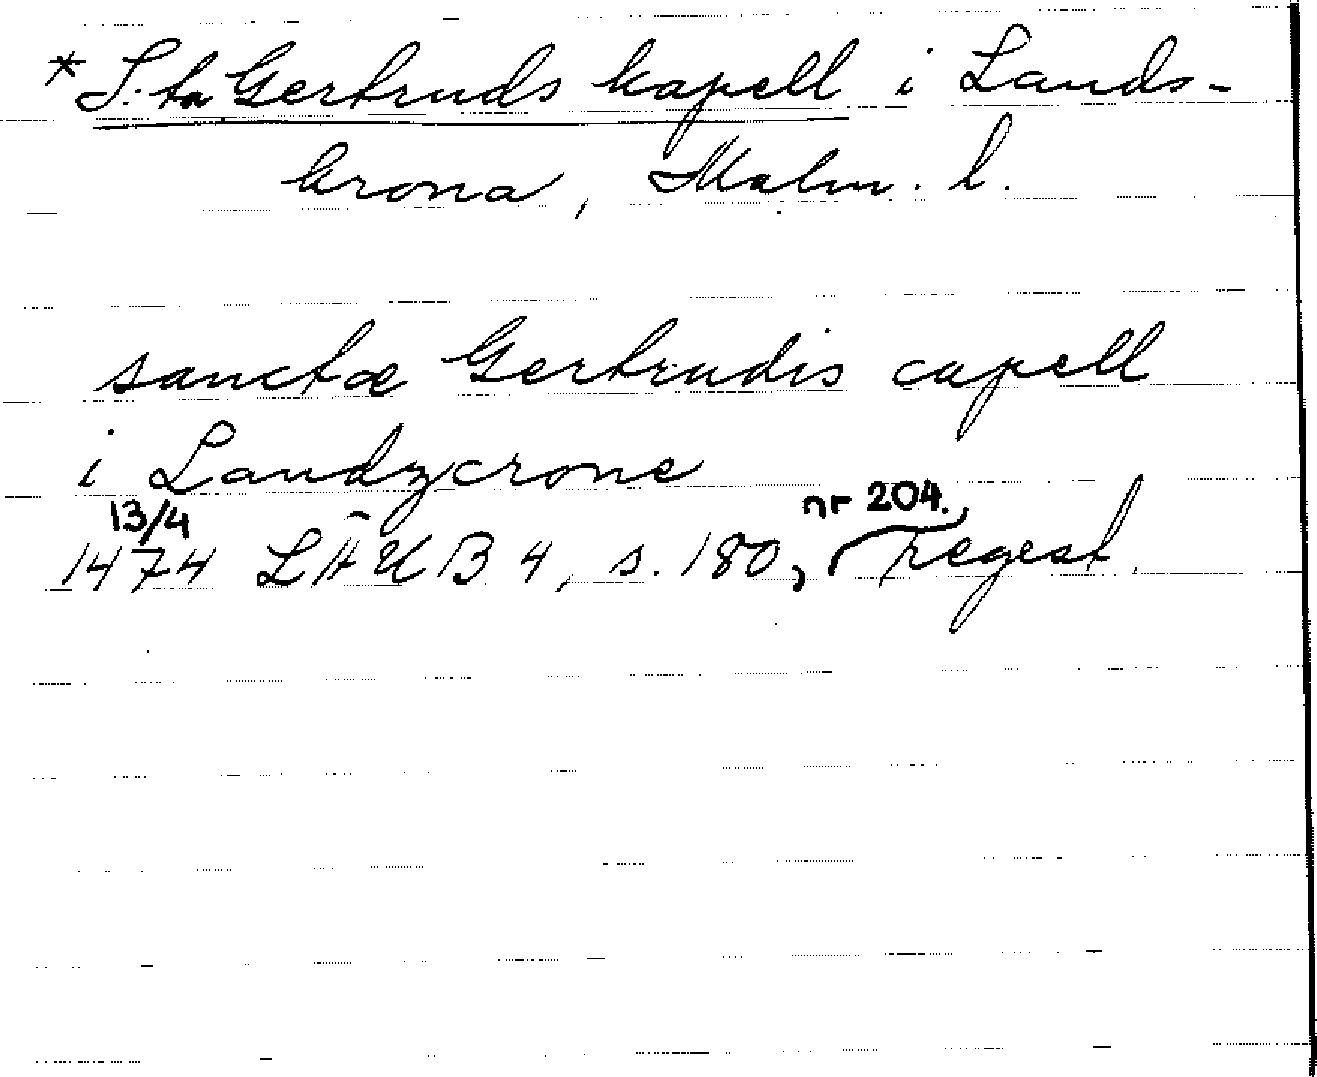 *S:ta Gertruds kapell i Lands-
krona, Malm. l.
sanctæ Gertrudis capell
i Landzcrone
13/4 nr 204.,
1474 LÄUB 4, s. 180, regest.